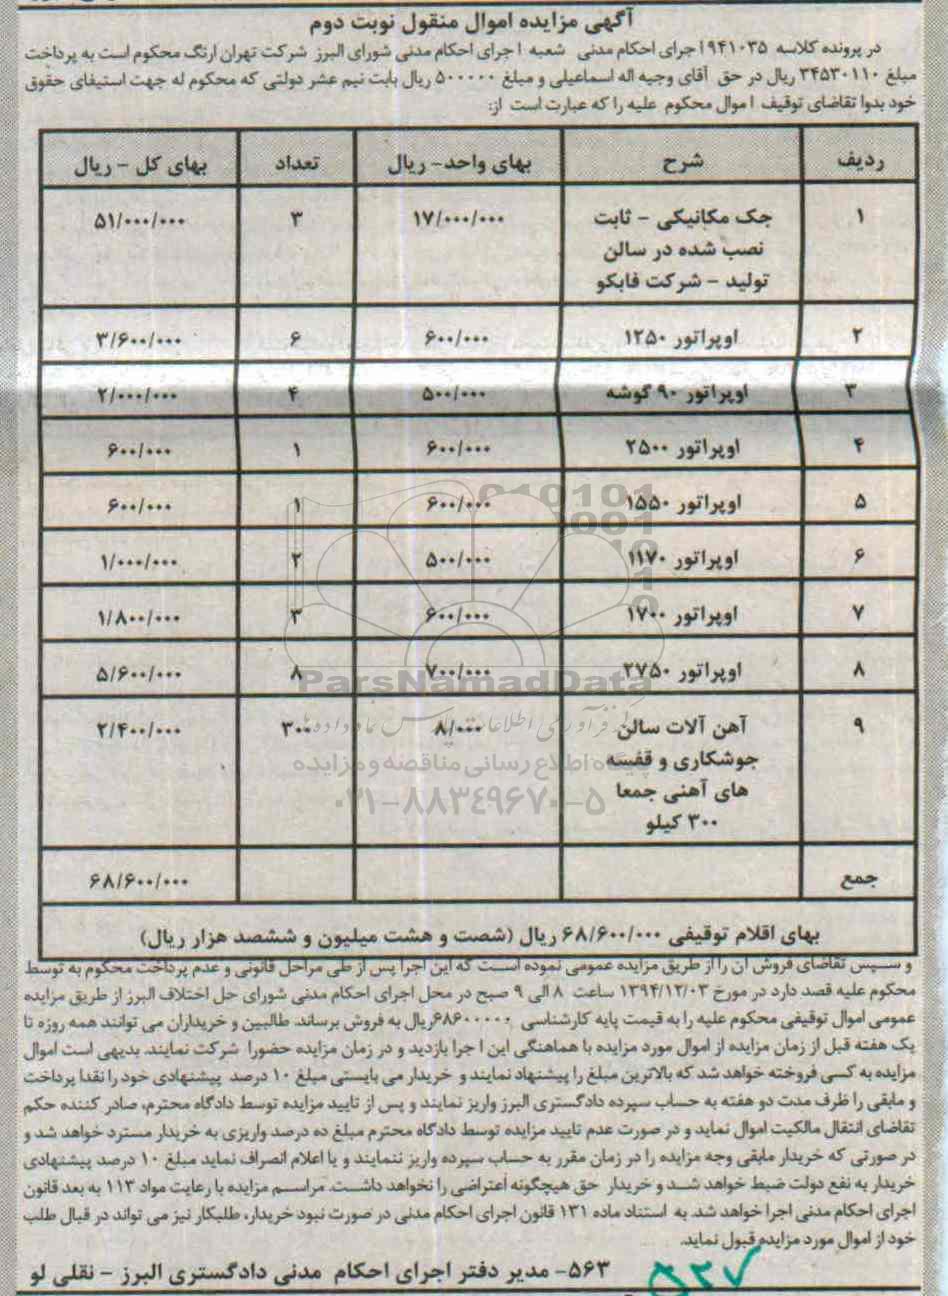 آگهی مزایده اموال منقول نوبت دوم
در پرونده کلاسه ۹۴۱۰۳۵ اجرای احکام مدنی شعبه اجرای احکام مدنی شورای البرز شرکت تهران ارنگ محکوم است به پرداخت
مبلغ ۳۴۵۳۰۱۱۰ ریال در حق آقای وجیه اله اسماعیلی و مبلغ ۵۰۰۰۰۰ ریال بابت نیم عشر دولتی که محکوم له جهت استیفای حقوق
خود بدوا تقاضای توقیف اموال محکوم علیه را که عبارت است از:
ردیف شرح بهای واحد- ریال تعداد بهای کل - ریال
۱ جک مکانیکی - ثابت ۱۷/۰۰۰/۰۰۰ ۳ ۵۱/۰۰۰/۰۰۰
نصب شده در سالن
تولید - شرکت فابکو
۲ اوپراتور ۱۲۵۰ ۶۰۰/۰۰۰ ۶ ۳/۶۰۰/۰۰۰
۳ اوپراتور ۹۰ گوشه ۵۰۰/۰۰۰ ۴ ۲/۰۰۰/۰۰۰
۴ اوپراتور ۲۵۰۰ ۶۰۰/۰۰۰ ۱ ۶۰۰/۰۰۰
۵ اوپراتور ۱۵۵۰ ۶۰۰/۰۰۰ ۱ ۶۰۰/۰۰۰
۶ اوپراتور ۱۱۷۰ ۵۰۰/۰۰۰ ۲ ۱/۰۰۰/۰۰۰
۷ اوپراتور ۱۷۰۰ ۶۰۰/۰۰۰ ۳ ۱/۸۰۰/۰۰۰
۸ اوپراتور ۲۷۵۰ ۷۰۰/۰۰۰ ۸ ۵/۶۰۰/۰۰۰
ParsNamadData
۹ آهن آلات سالن ۸/۰۰۰ ۳۰۰ ۲/۴۰۰/۰۰۰
جوشکاری و قفسه
های آهنی جمعا
۳۰۰ کیلو
پایگاه اطلاع رسانی مناقصه و مزایده
۰۲۱-۸۸۳۴۹۶۷۰-۵
جمع ۶۸/۶۰۰/۰۰۰
بهای اقلام توقیفی ۶۸/۶۰۰/۰۰۰ ریال (شصت و هشت میلیون و ششصد هزار ریال)
و سپس تقاضای فروش آن را از طریق مزایده عمومی نموده است که این اجرا پس از طی مراحل قانونی و عدم پرداخت محکوم به توسط
محکوم علیه قصد دارد در مورخ ۱۳۹۴/۱۲/۰۳ ساعت ۸ الی ۹ صبح در محل اجرای احکام مدنی شورای حل اختلاف البرز از طریق مزایده
عمومی اموال توقیفی محکوم علیه را به قیمت پایه کارشناسی ۶۸۶۰۰۰۰۰ریال به فروش برساند. طالبین و خریداران می توانند همه روزه تا
یک هفته قبل از زمان مزایده از اموال مورد مزایده با هماهنگی این اجرا بازدید و در زمان مزایده حضورا شرکت نمایند. بدیهی است اموال
مزایده به کسی فروخته خواهد شد که بالاترین مبلغ را پیشنهاد نمایند و خریدار می بایستی مبلغ ۱۰ درصد پیشنهادی خود را نقدا پرداخت
و مابقی را ظرف مدت دو هفته به حساب سپرده دادگستری البرز واریز نمایند و پس از تایید مزایده توسط دادگاه محترم، صادر کننده حکم
تقاضای انتقال مالکیت اموال نماید و در صورت عدم تایید مزایده توسط دادگاه محترم مبلغ ده درصد واریزی به خریدار مسترد خواهد شد و
در صورتی که خریدار مابقی وجه مزایده را در زمان مقرر به حساب سپرده واریز ننمایند و یا اعلام انصراف نماید مبلغ ۱۰ درصد پیشنهادی
خریدار به نفع دولت ضبط خواهد شد و خریدار حق هیچگونه اعتراضی را نخواهد داشت. مراسم مزایده با رعایت مواد ۱۱۳ به بعد قانون
اجرای احکام مدنی اجرا خواهد شد. به استناد ماده ۱۳۱ قانون اجرای احکام مدنی در صورت نبود خریدار، طلبکار نیز می تواند در قبال طلب
خود از اموال مورد مزایده قبول نماید.
۵۶۳- مدیر دفتر اجرای احکام مدنی دادگستری البرز - نقلی لو